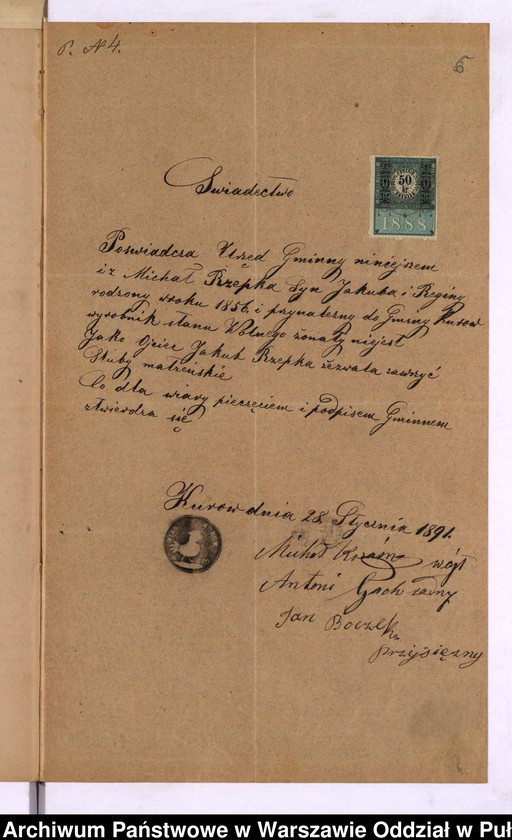 P. N 4.
5
Swiadectwo
50
kr
1888
Poswiadcza Urzed Gminny niniejszem
iz Michał Rzepka Syn Jakuba i Reginy
rodzony wroku 1856. i przynależny do Gminy Kurow
wyrobnik stanu Wolnego żonaty niejest
Jako Ojciec Jakub Rzepka zezwala zawrzyć
Sluby małzenskie
Co dla wiary pieczęciem i podpisem Gminnem
ztwierdza się
Kurow dnia 28. Stycznia 1891.
Michał wójt
Antoni Gach radny
Jan Boczek
przysięzny
Archiwum Państwowe w Warszawie Oddział w Puł